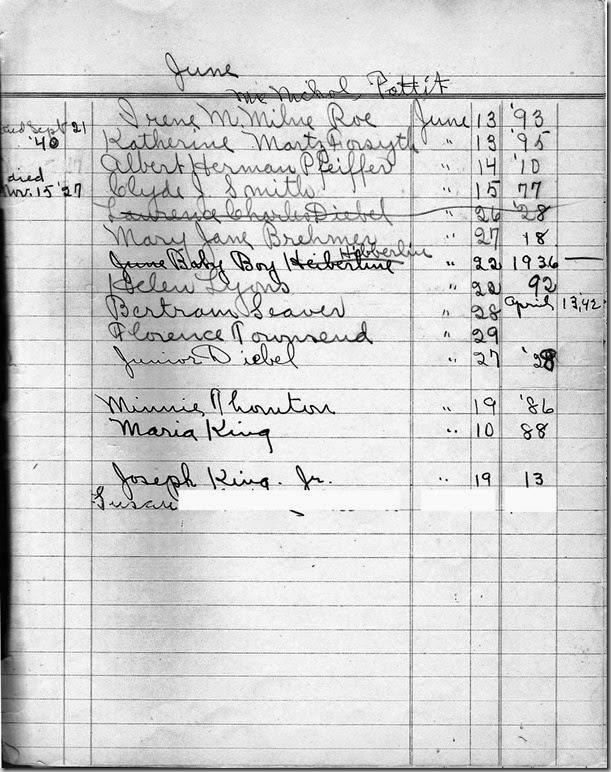 June
Mc Nichol Pottit
Sept 21 Irene M. Milne Roe June 13 '93
'40 Katherine Martz Forsyth " 13 '95
Albert Herman Pfeiffer " 14 '10
died
Nov. 15 '27 Clyde J Smith " 15 77
Laurence Charles Diebel " 26 '28
Mary Jane Brehmer " 27 18
Hibberline
June Baby Boy Heiberline " 22 1936 —
Helen Lyons " 22 92
Bertram Seaver " 28 April 13, '42
Florence Townsend " 29
Junior Diebel " 27 '28
Minnie Thornton " 19 '86
Maria King " 10 88
Joseph King. Jr. " 19 13
Susan